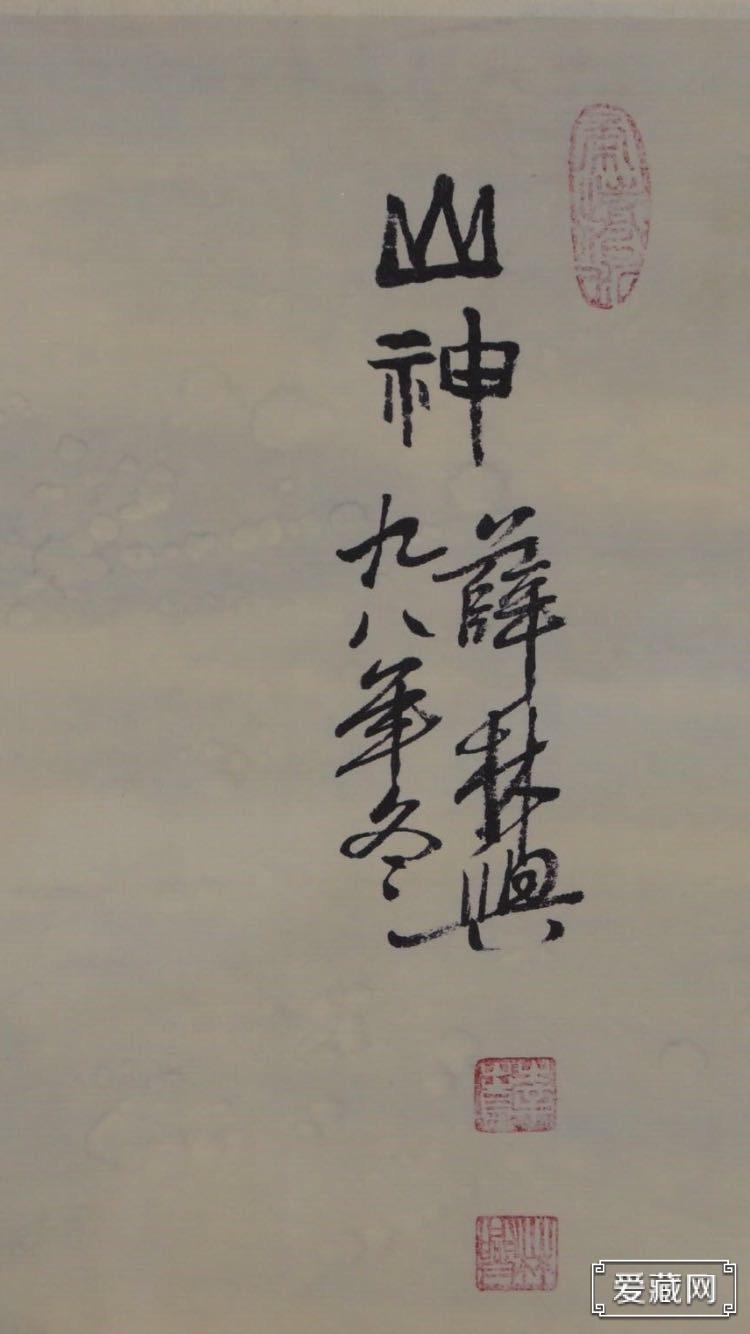 山神
薛林興
九八年冬
爱藏网